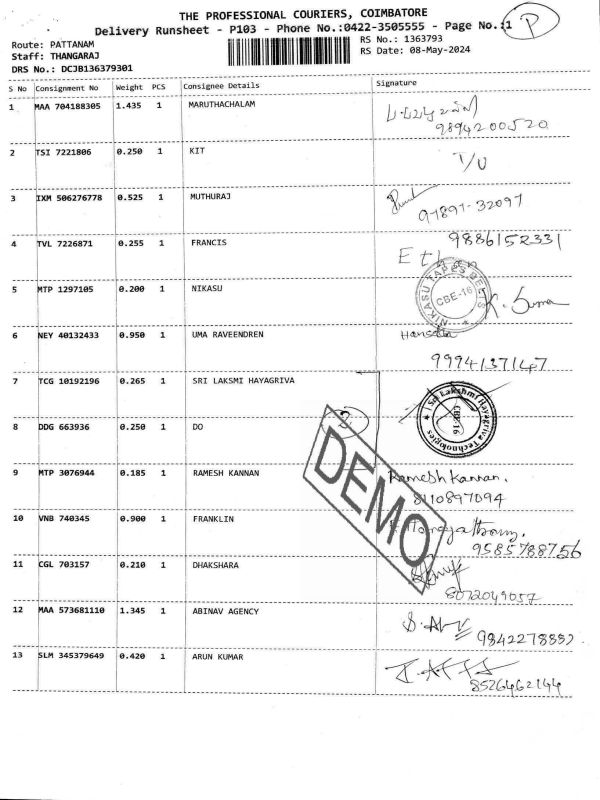 THE PROFESSIONAL COURIERS, COIMBATORE
Delivery Runsheet - P103 - Phone No.:0422-3505555 - Page No.:1 P
Route: PATTANAM
Staff: THANGARAJ
DRS No.: DCJB136379301
RS No.: 1363793
RS Date: 08-May-2024
S No Consignment No Weight PCS Consignee Details Signature
1 MAA 704188305 1.435 1 MARUTHACHALAM
9894200520
2 TSI 7221806 0.250 1 KIT T/U
3 IXM 506276778 0.525 1 MUTHURAJ
97897-32097
4 TVL 7226871 0.255 1 FRANCIS 9886152331
5 MTP 1297105 0.200 1 NIKASU NIKASU TAPES BELTS CBE-16 K. Suma
6 NEY 40132433 0.950 1 UMA RAVEENDREN
9994137147
7 TCG 10192196 0.265 1 SRI LAKSMI HAYAGRIVA
Sri Lakshmi Hayagriva Technologies CBE-16
8 DDG 663936 0.250 1 DO 2
DEMO
9 MTP 3076944 0.185 1 RAMESH KANNAN Ramesh Kannan.
8110897094
10 VNB 740345 0.900 1 FRANKLIN
9585788756
11 CGL 703157 0.210 1 DHAKSHARA
8072049057
12 MAA 573681110 1.345 1 ABINAV AGENCY
9842278882
13 SLM 345379649 0.420 1 ARUN KUMAR
8526462144